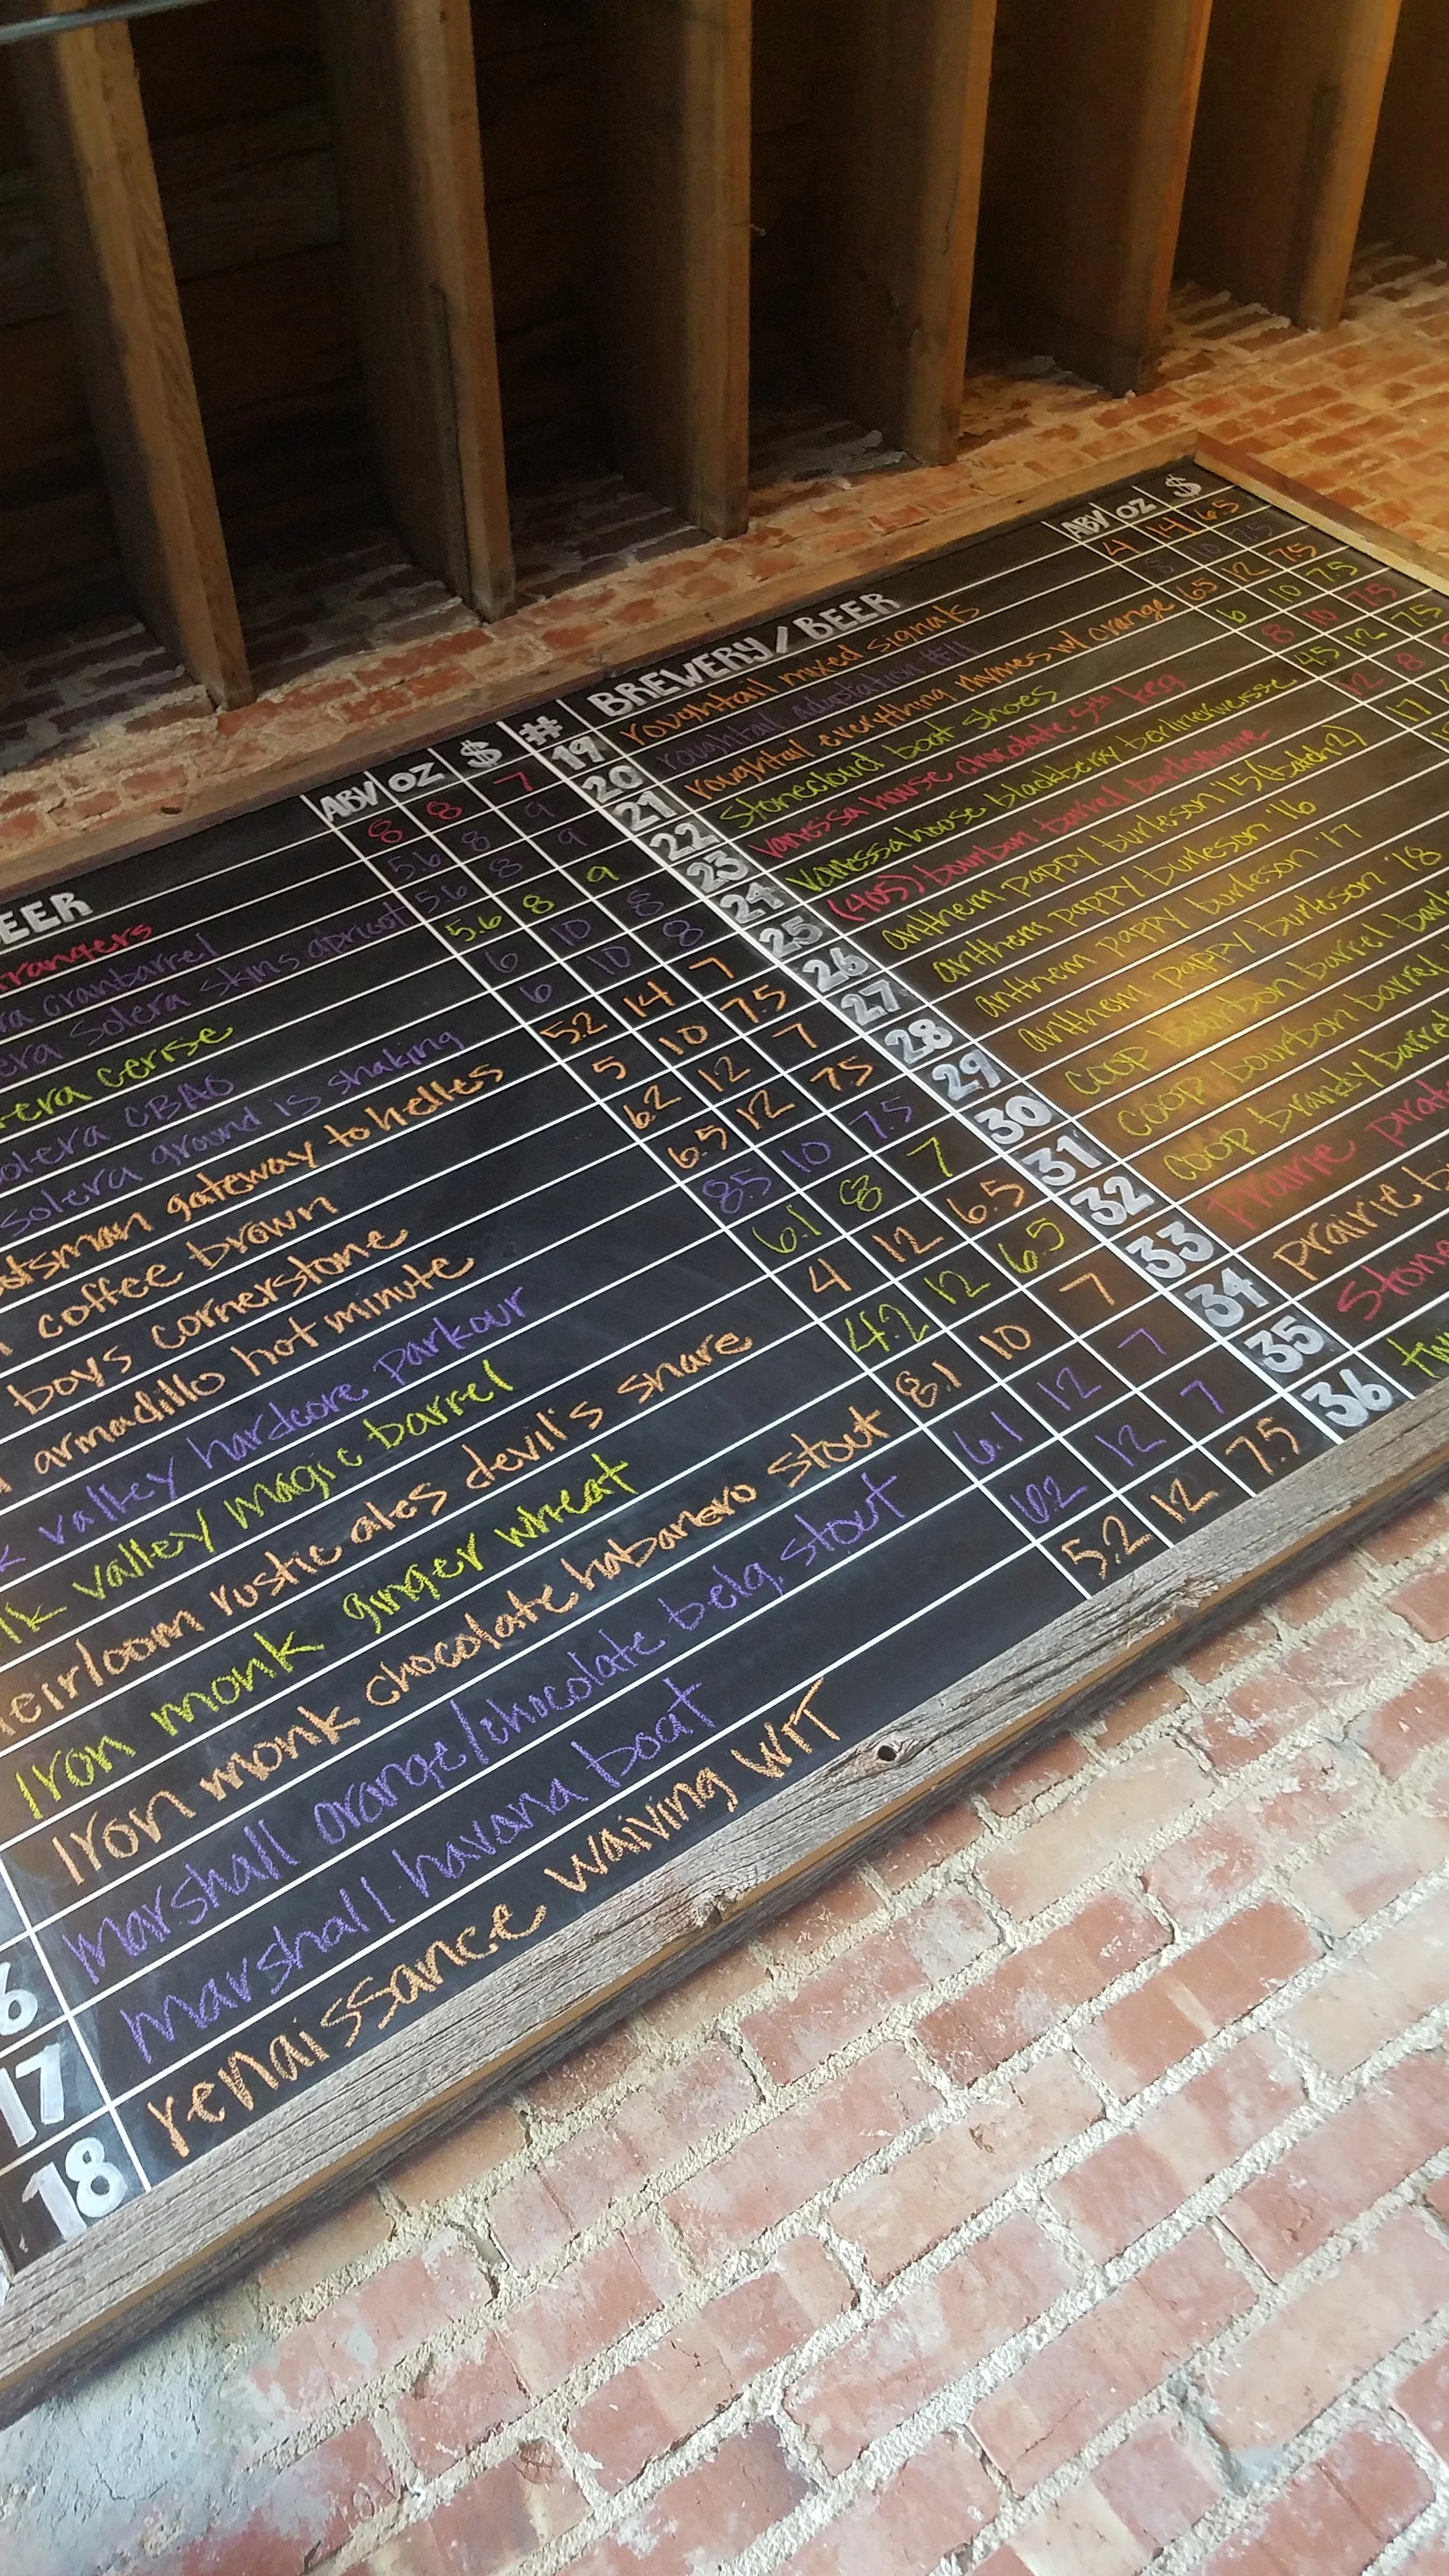 BEER ABV OZ $
rangers 8 8 7
cranbarrel 5.6 8 9
solera skins apricot 5.6 8 9
cerise 5.6 8 9
solera CBAO 6 10 8
solera ground is shaking 6 10 8
gateway to helles 5.2 14 7
coffee brown 5 10 7.5
boys cornerstone 6.2 12 7
armadillo hot minute 6.5 12 7.5
valley hardcore parkour 8.5 10 7.5
valley magic barrel 6.1 8 7
heirloom rustic ales devil's snare 4 12 6.5
Iron monk ginger wheat 4.2 12 6.5
Iron monk chocolate habanero stout 8.1 10 7
6 marshall orange/chocolate belg. stout 6.1 12 7
17 marshall havana boat 6.2 12 7
18 renaissance waiving WIT 5.2 12 7.5
# BREWERY/BEER ABV OZ $
19 roughtail mixed signals 4 14 6.5
20 roughtail adaptation #11 8 10 7.5
21 roughtail everything rhymes w/ orange 65 12 7.5
22 Stonecloud boat shoes 6 10 7.5
23 vanessa house chocolate 5th keg 8 10 7.5
24 vanessa house blackberry berlinerweisse 4.5 12 7.5
25 (405) bourbon barrel barleywine 12 8
26 anthem pappy burleson '15 (batch 2) 17
27 anthem pappy burleson '16
28 anthem pappy burleson '17
29 anthem pappy burleson '18
30 coop bourbon barrel
31 coop bourbon barrel
32 coop brandy barrel
33 prairie
34 prairie
35
36